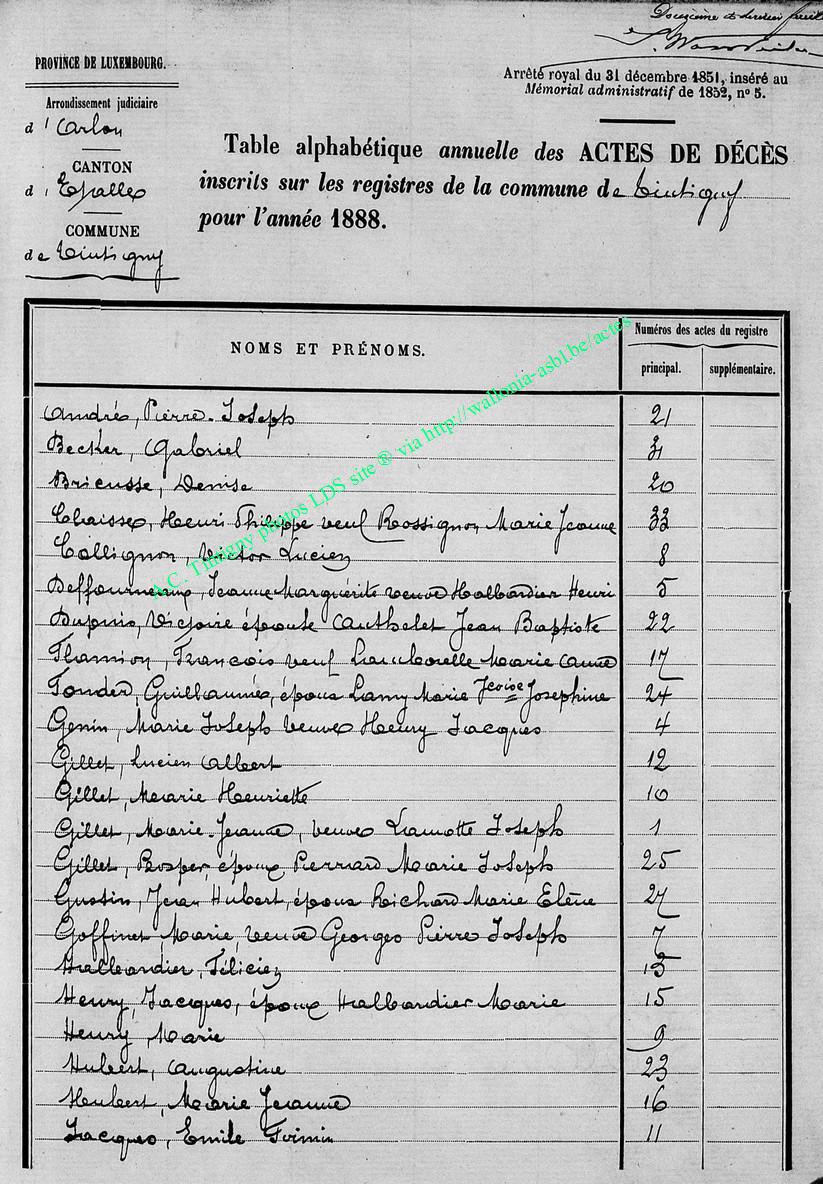 Douzième et dernier feuillet
PROVINCE DE LUXEMBOURG.
Arrêté royal du 31 décembre 1851, inséré au
Mémorial administratif de 1852, n° 5.
Arrondissement judiciaire
d'Arlon
CANTON
d'Etalle
COMMUNE
de Tintigny
Table alphabétique annuelle des ACTES DE DÉCÈS
inscrits sur les registres de la commune de Tintigny
pour l'année 1888.
NOMS ET PRÉNOMS.
Numéros des actes du registre
principal. supplémentaire.
André, Pierre-Joseph 21
Becker, Gabriel 31
Bricusse, Denise 20
Chaisse, Henri Philippe veuf Rossignon Marie Jeanne 33
Collignon, Victor Lucien 8
Deffourneaux, Jeanne Marguérite veuve Halbardier Henri 5
Dupuis, Victoire épouse Authelet Jean Baptiste 22
Flamion, François veuf Lamborelle Marie Anne 17
Fonder, Guillaume, époux Lamy Marie Jcoise Josephine 24
Genin, Marie Joseph veuve Henry Jacques 4
Gillet, Lucien Albert 12
Gillet, Marie Henriette 10
Gillet, Marie-Jeanne, veuve Lamotte Joseph 1
Gillet, Prosper, époux Pierrard Marie Joseph 25
Gustin, Jean Hubert, époux Richard Marie Elène 27
Goffinet Marie, veuve Georges Pierre Joseph 7
Halbardier, Félicien 13
Henry, Jacques, époux Halbardier Marie 15
Henry, Marie 9
Hubert, Augustine 23
Hubert, Marie Jeanne 16
Jacques, Emile Firmin 11
A.C. Tintigny photos LDS site ® via http://wallonia-asbl.be/actes